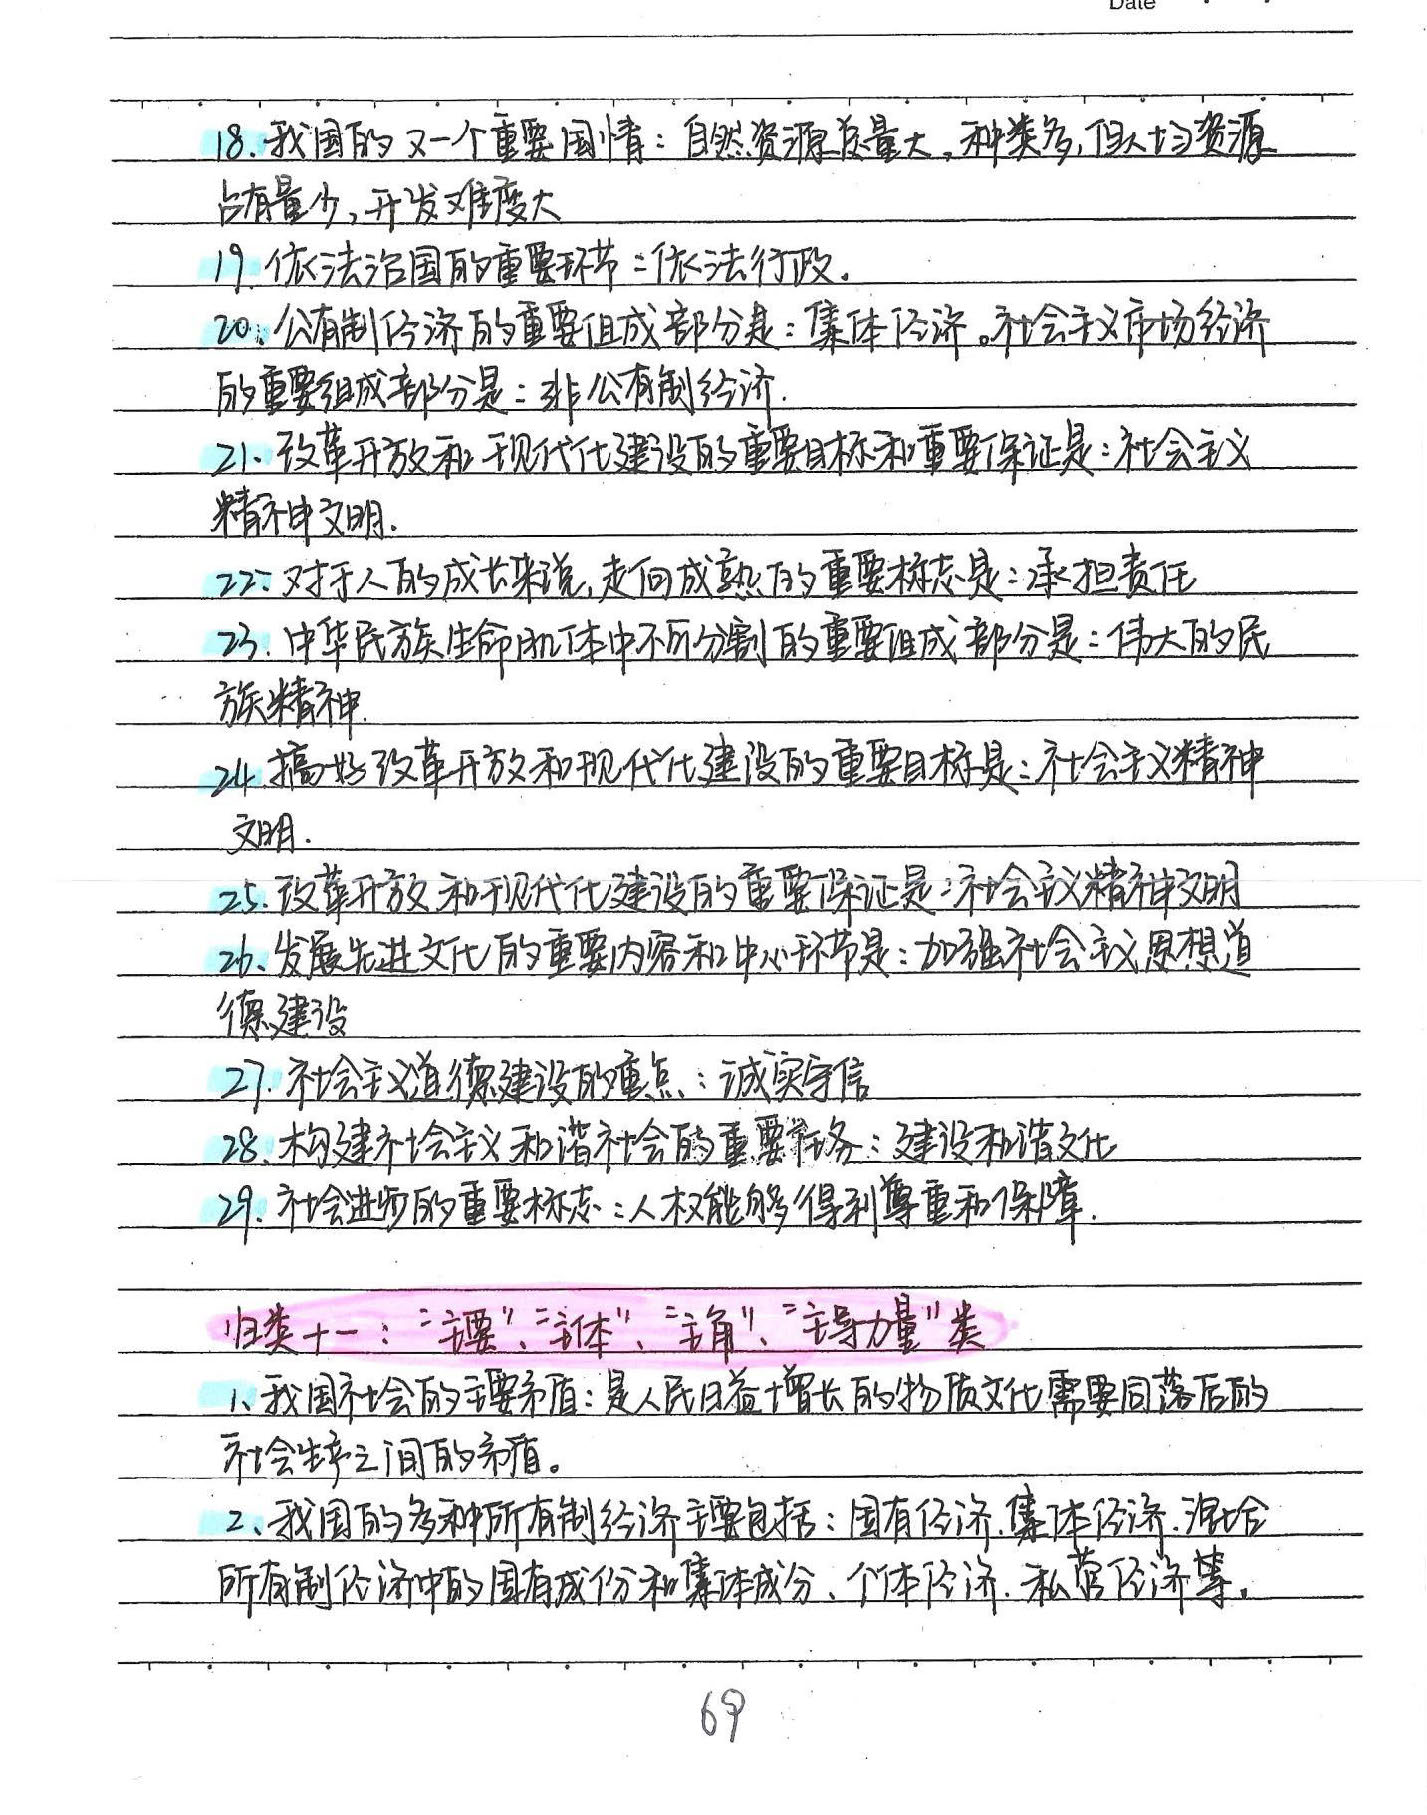 Date
18.我国的又一个重要国情：自然资源总量大,种类多,但人均资源
占有量少,开发难度大
19.依法治国的重要环节：依法行政。
20.公有制经济的重要组成部分是：集体经济。社会主义市场经济
的重要组成部分是：非公有制经济.
21、改革开放和现代化建设的重要目标和重要保证是：社会主义
精神文明.
22.对于人的成长来说,走向成熟的重要标志是：承担责任
23.中华民族生命机体中不可分割的重要组成部分是：伟大的民
族精神.
24.搞好改革开放和现代化建设的重要目标是：社会主义精神
文明.
25.改革开放和现代化建设的重要保证是：社会主义精神文明
26、发展先进文化的重要内容和中心环节是：加强社会主义思想道
德建设
27.社会主义道德建设的重点：诚实守信
28.构建社会主义和谐社会的重要任务：建设和谐文化
29.社会进步的重要标志：人权能够得到尊重和保障.
归类十一：“主要”、“主体”、“主角”、“主导力量”类
1、我国社会的主要矛盾：是人民日益增长的物质文化需要同落后的
社会生产之间的矛盾。
2、我国的多种所有制经济主要包括：国有经济.集体经济.混合
所有制经济中的国有成份和集体成分、个体经济.私营经济等。
69